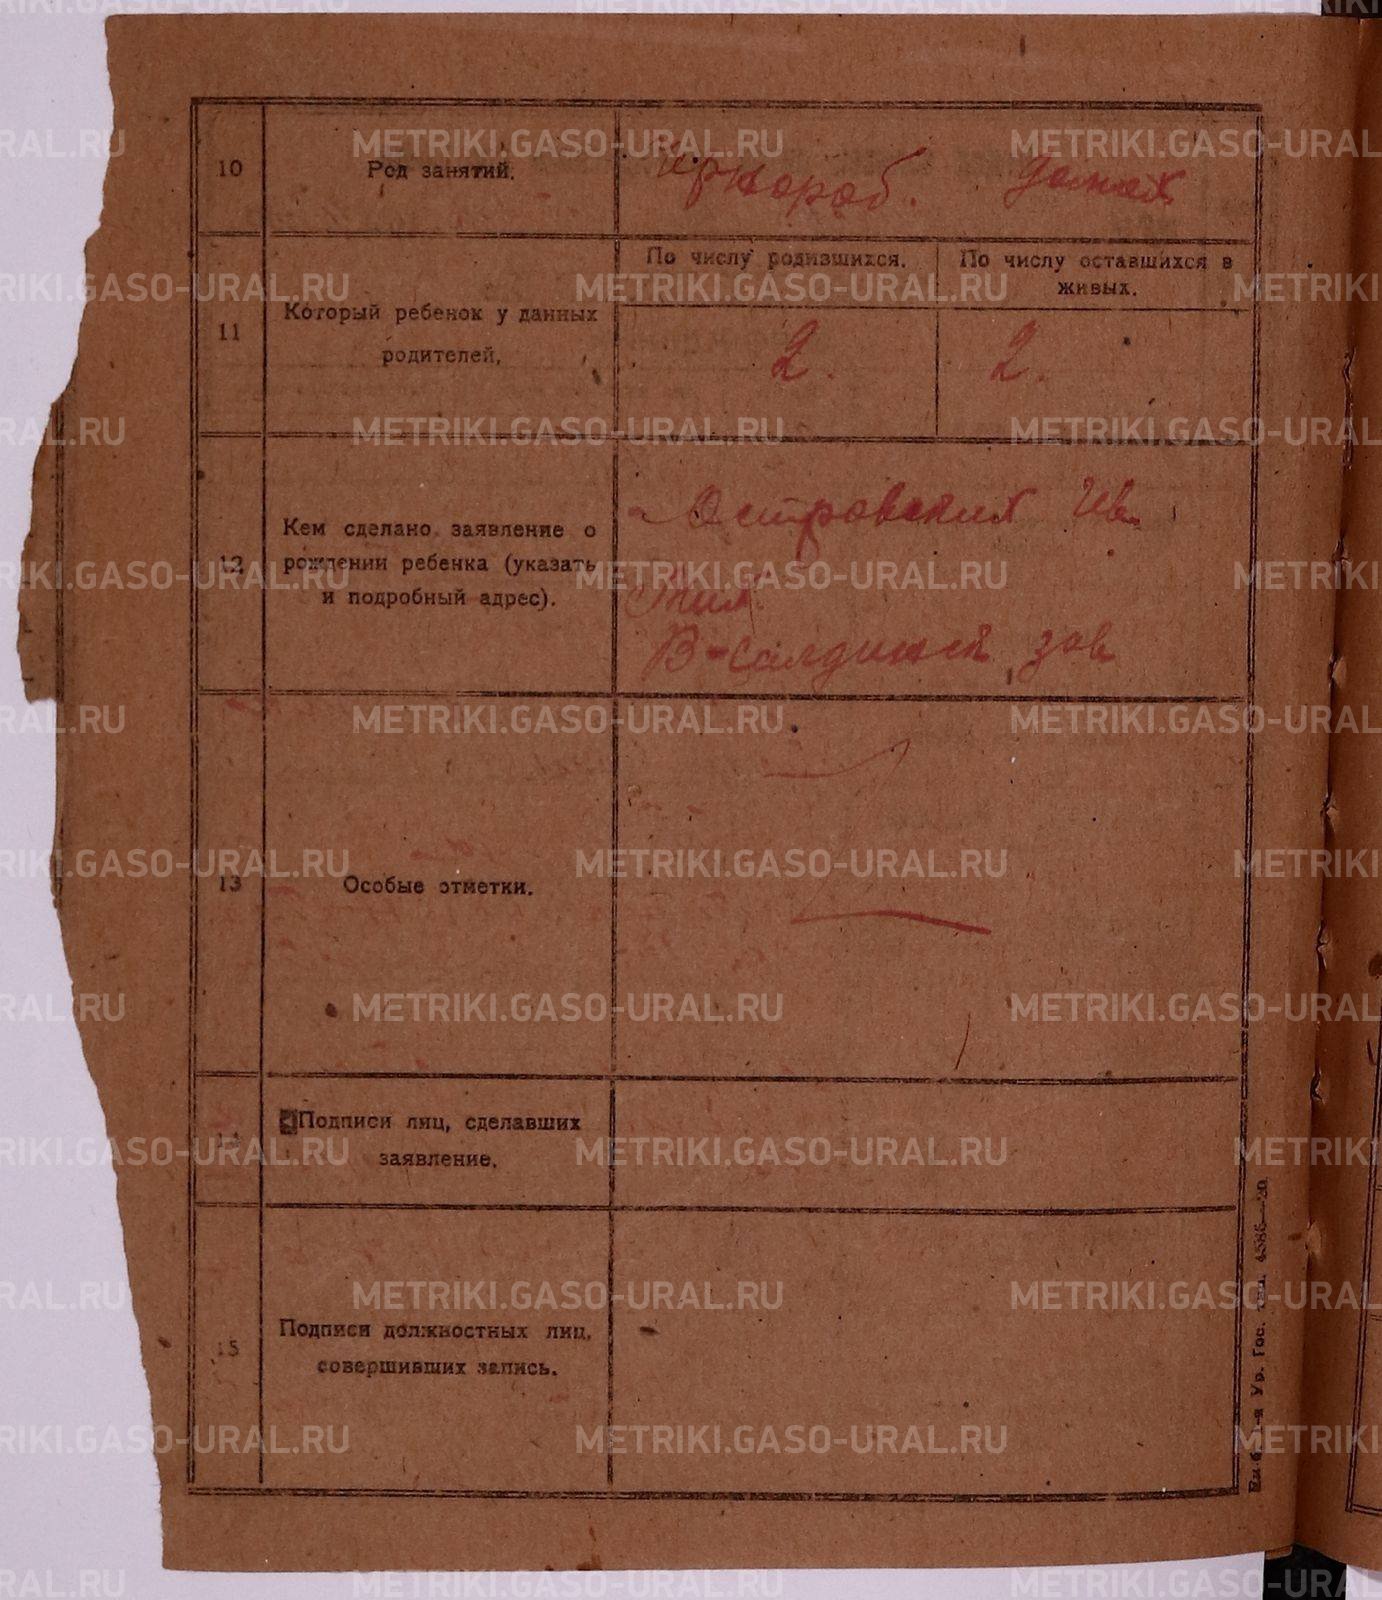 10
Род занятий.
Чернораб. домох
11
Который ребенок у данных
родителей.
По числу родившихся.
По числу оставшихся в
живых.
2.
2.
12
Кем сделано заявление о
рождении ребенка (указать
и подробный адрес).
Островских Ив.
В-Салдинск зав
13
Особые отметки.
14
Подписи лиц, сделавших
заявление.
15
Подписи должностных лиц,
совершивших запись.
METRIKI.GASO-URAL.RU